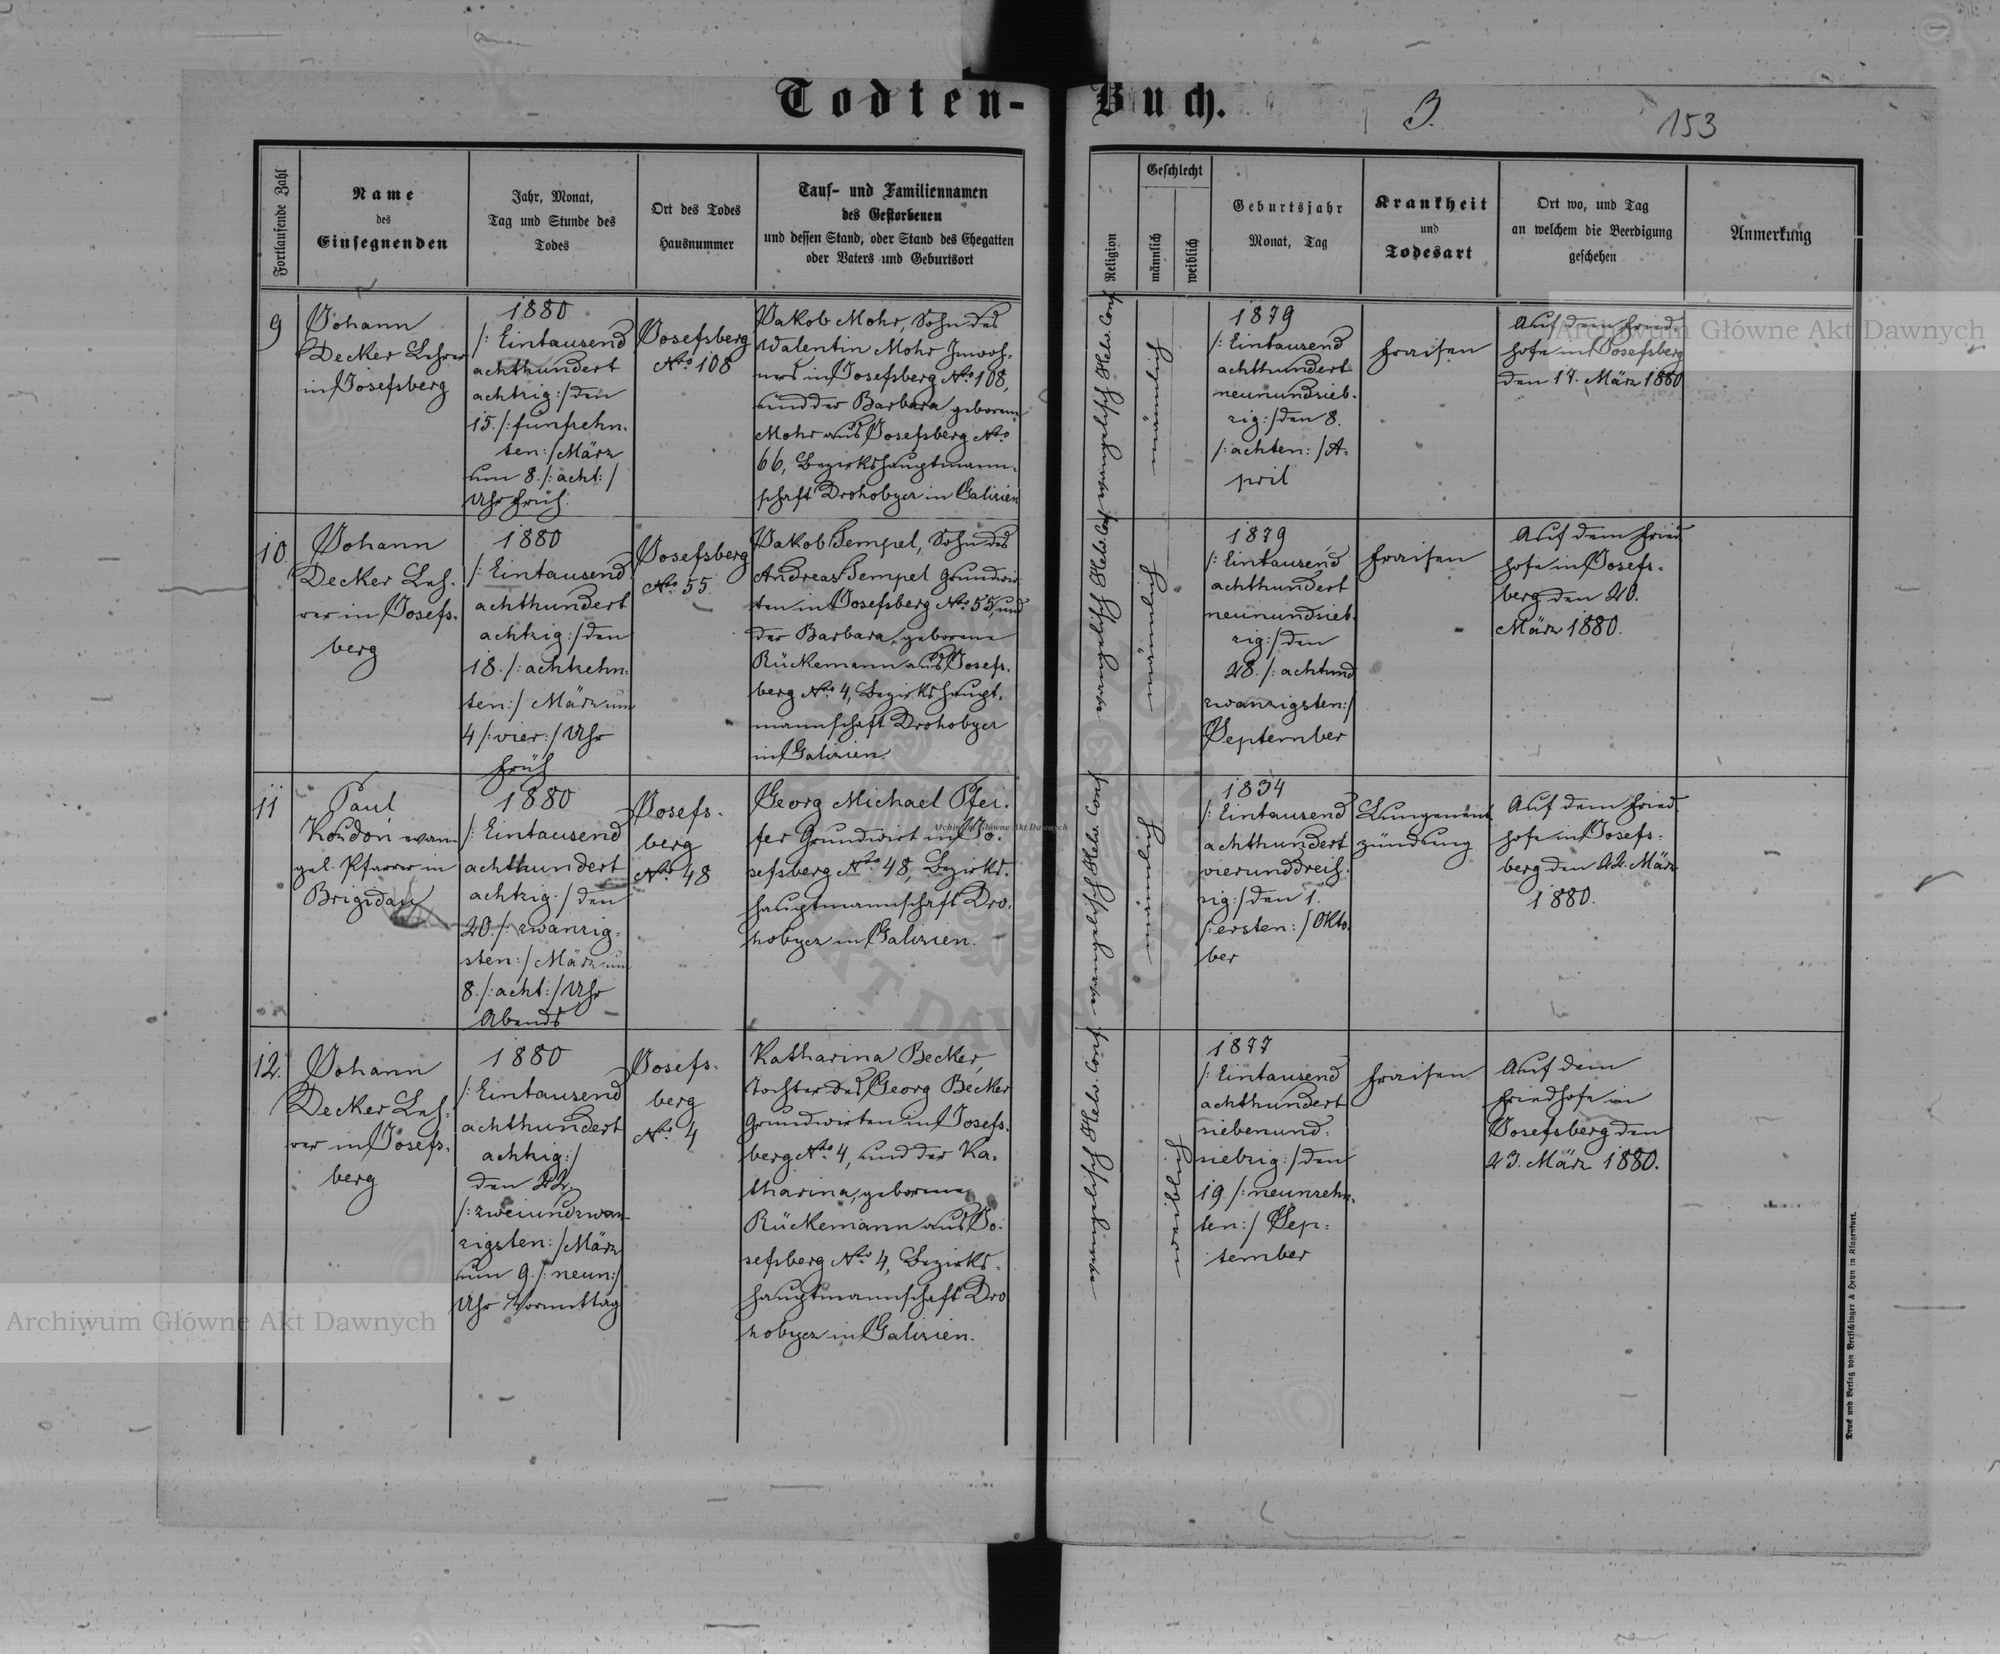 Todten-Buch.
3.
153
Fortlaufende Zahl
Name
des
Einsegnenden
Jahr, Monat,
Tag und Stunde des
Todes
Ort des Todes
Hausnummer
Tauf- und Familiennamen
des Gestorbenen
und dessen Stand, oder Stand des Ehegatten
oder Vaters und Geburtsort
Religion
Geschlecht
männlich
weiblich
Geburtsjahr
Monat, Tag
Krankheit
und
Todesart
Ort wo, und Tag
an welchem die Beerdigung
geschehen
Anmerkung
9
Johann
Decker Lehrer
in Josefsberg
1880
/: Eintausend
achthundert
achtzig :/ den
15. /: fünfzehn-
ten :/ März
um 8. /: acht :/
Uhr früh.
Josefsberg
No. 108
Jakob Mohr, Sohn des
Valentin Mohr Inwoh-
ners in Josefsberg No. 108,
und der Barbara, geborene
Mohr aus Josefsberg No.
66, Bezirkshauptmann-
schaft Drohobycz in Galizien
1879
/: Eintausend
achthundert
neunundsieb-
zig :/ den 8.
/: achten :/ A-
pril
Fraisen
Auf dem Fried-
hofe in Josefsberg
den 17. März 1880
10.
Johann
Decker Leh-
rer in Josefs-
berg
1880
/: Eintausend
achthundert
achtzig :/ den
18. /: achtzehn-
ten :/ März um
4 /: vier :/ Uhr
früh
Josefsberg
No. 55.
Jakob Tempel, Sohn des
Andreas Tempel Grundwir-
ten in Josefsberg No. 55, und
der Barbara, geborene
Rückemann aus Josefs-
berg No. 4, Bezirkshaupt-
mannschaft Drohobycz
in Galizien.
1879
/: Eintausend
achthundert
neunundsieb-
zig :/ den
28. /: achtund
zwanzigsten :/
September
Fraisen
Auf dem Fried
hofe in Josefs-
berg den 20.
März 1880.
11
Paul
evan-
gel. Pfarrer in
Brigidau
1880
/: Eintausend
achthundert
achtzig :/ den
20. /: zwanzig-
sten :/ März um
8. /: acht :/ Uhr
Abends
Josefs-
berg
No. 48
Georg Michael Pfei-
fer Grundwirt in Jo-
sefsberg No. 48, Bezirks-
hauptmannschaft Dro-
hobycz in Galizien.
1834
/: Eintausend
achthundert
vierunddreis-
sig :/ den 1.
/: ersten :/ Okto-
ber
Lungenent
zündung
Auf dem Fried-
hofe in Josefs-
berg den 22. März
1880.
12.
Johann
Decker Leh-
rer in Josefs-
berg
1880
/: Eintausend
achthundert
achtzig :/
den 22.
/: zweiundzwan-
zigsten :/ März
um 9. /: neun :/
Uhr Vormittag
Josefs-
berg
No. 4
Katharina Becker,
Tochter des Georg Becker
Grundwirten in Josefs-
berg No. 4, und der Ka-
tharina, geborene
Rückemann aus Jo-
sefsberg No. 4, Bezirks-
hauptmannschaft Dro
hobycz in Galizien.
1877
/: Eintausend
achthundert
siebenund-
siebzig :/ den
19. /: neunzehn-
ten :/ Sep-
tember
Fraisen
Auf dem
Friedhofe in
Josefsberg den
23. März 1880.
Druck und Verlag von Bertschinger & Heyn in Klagenfurt.
Archiwum Główne Akt Dawnych
Archiwum Główne Akt Dawnych
Archiwum Główne Akt Dawnych